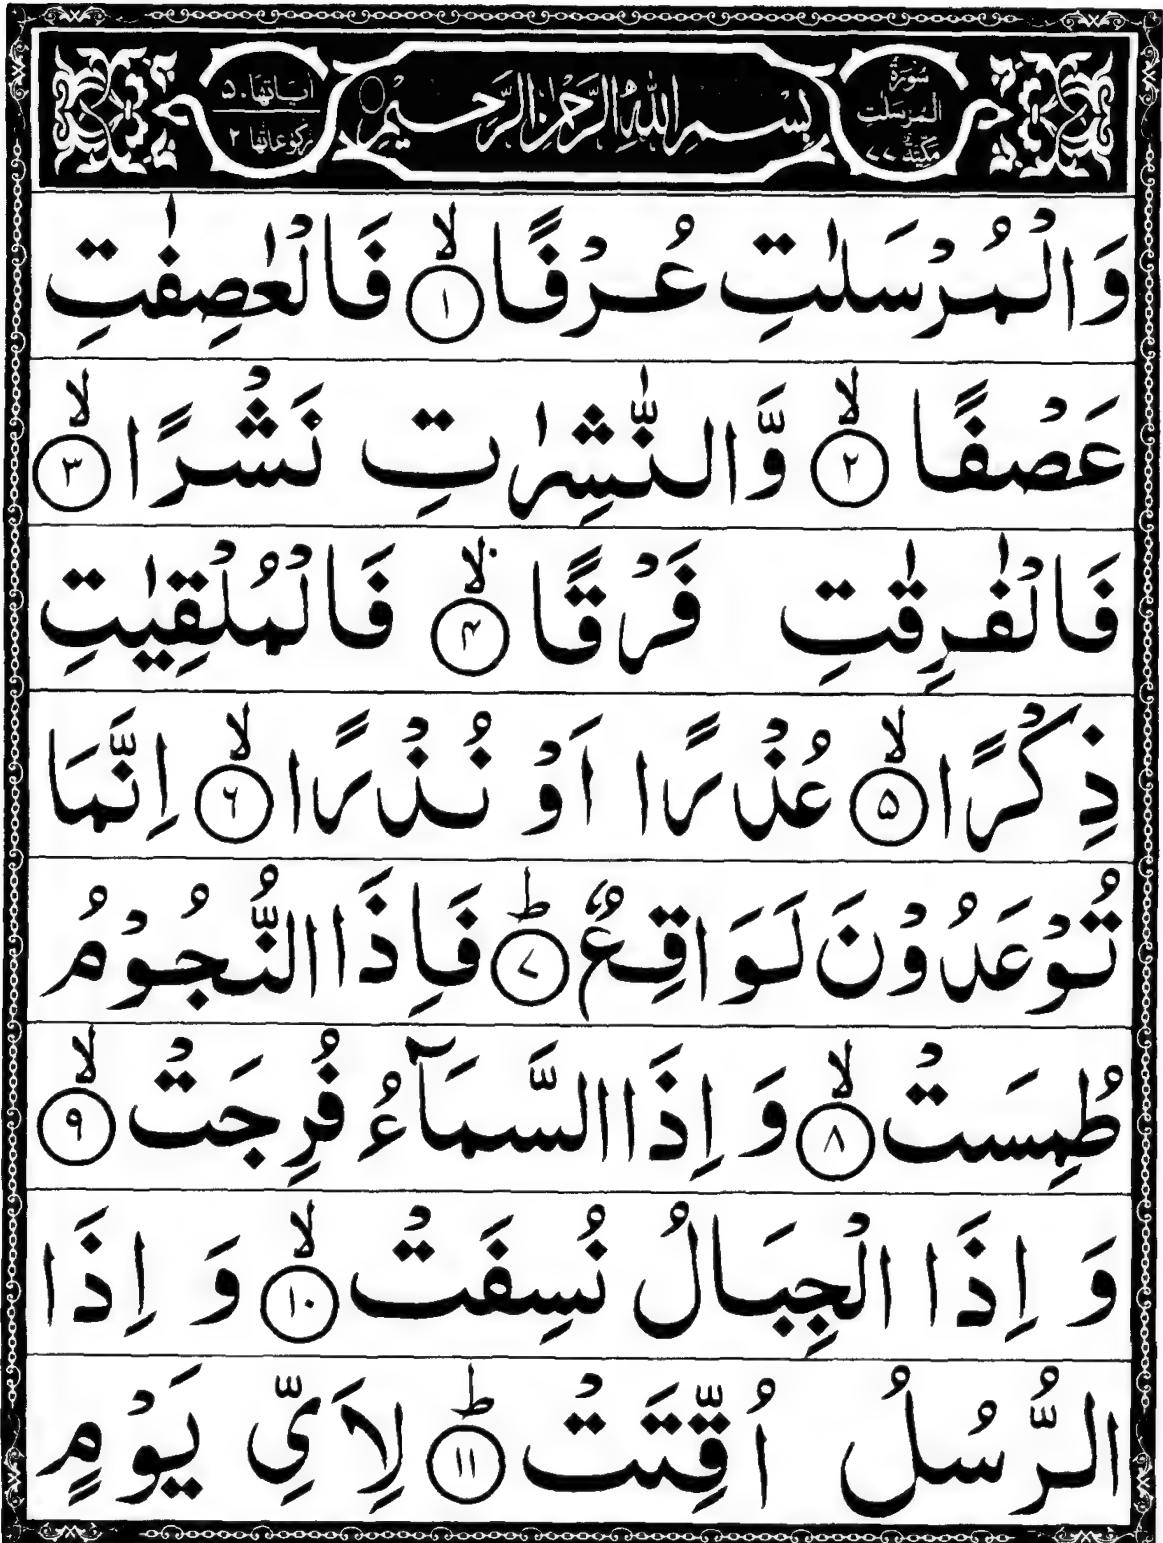 سُوْرَةُ الْمُرْسَلٰتِ مَكِّيَّةٌ ٧٧
بِسْمِ اللّٰهِ الرَّحْمٰنِ الرَّحِيْمِ
اٰیَاتُهَا ٥٠ رُكُوْعَاتُهَا ٢
وَالْمُرْسَلٰتِ عُرْفًا ۙ ﴿۱﴾ فَالْعٰصِفٰتِ
عَصْفًا ۙ ﴿۲﴾ وَّالنّٰشِرٰتِ نَشْرًا ۙ ﴿۳﴾
فَالْفٰرِقٰتِ فَرْقًا ۙ ﴿۴﴾ فَالْمُلْقِيٰتِ
ذِكْرًا ۙ ﴿۵﴾ عُذْرًا اَوْ نُذْرًا ۙ ﴿۶﴾ اِنَّمَا
تُوْعَدُوْنَ لَوَاقِعٌ ؕ ﴿۷﴾ فَاِذَا النُّجُوْمُ
طُمِسَتْ ۙ ﴿۸﴾ وَ اِذَا السَّمَآءُ فُرِجَتْ ۙ ﴿۹﴾
وَ اِذَا الْجِبَالُ نُسِفَتْ ۙ ﴿۱۰﴾ وَ اِذَا
الرُّسُلُ اُقِّتَتْ ؕ ﴿۱۱﴾ لِاَيِّ يَوْمٍ